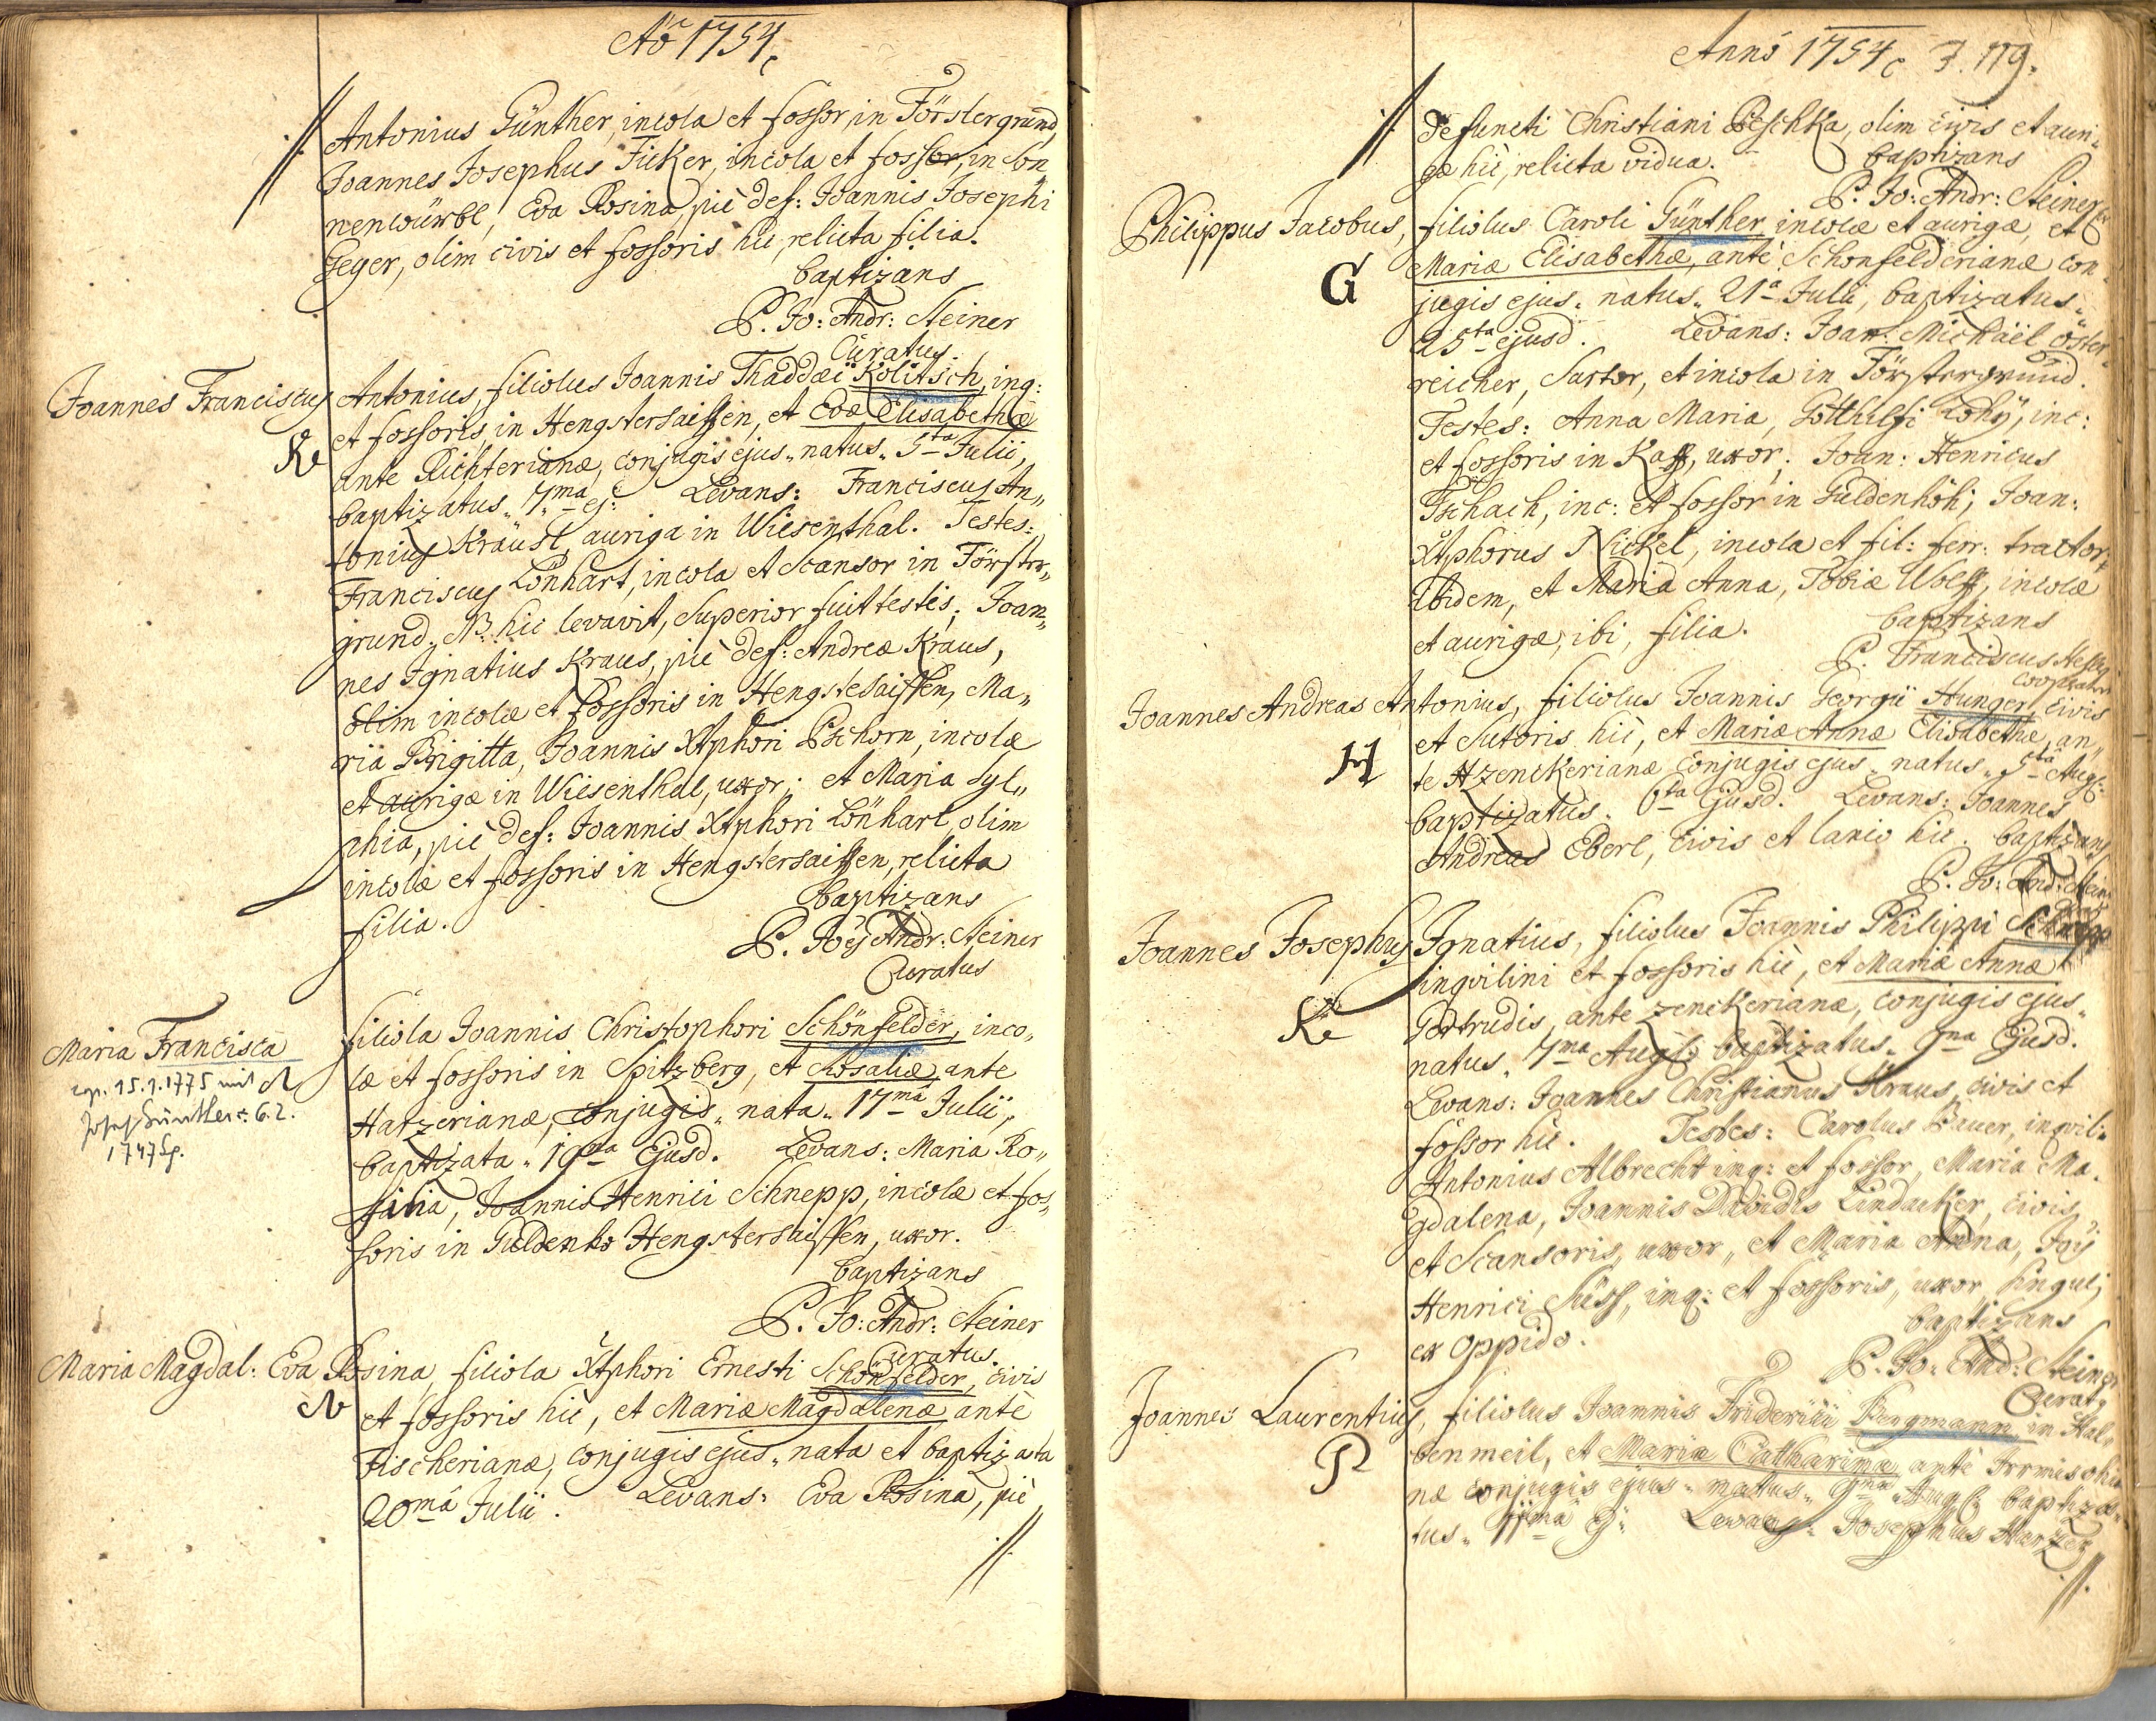 Aõ 1754
Antonius Günther, incola et fossor, in Förstergrund,
Joannes Josephus Ficker, incola et fossor, in Son„
nenwürbl, Eva Rosina, piè def: Joannis Josephi
Jeger, olim civis et fossoris hic, relicta filia.
baptizans
P. Jo: Andr: Steiner
Curatus.
Joannes Franciscus Antonius, filiolus Joannis Thaddæi Kolitsch, inq:
et fossoris, in Hengstersaiffen, et Evæ Elisabethæ
K ante Richterianæ, conjugis ejus„ natus„ 5ta Julii,
baptizatus„ 7ma ej: Levans: Franciscus An„
tonius Kräusl, auriga in Wiesenthal. Testes:
Franciscus Lönhart, incola et Scansor in Förster„
grund. NB. hic levavit, Superior fuit testis; Joan„
nes Ignatius Kraus, piè def: Andreæ Kraus,
olim incolæ et fossoris in Hengstesaiffen, Ma„
ria Brigitta, Joannis Xtphori Pschorn, incolæ
et aurigæ in Wiesenthal, uxor; et Maria Syl„
phia, piè def: Joannis Xtphori Lönhart, olim
incolæ et fossoris in Hengstersaiffen, relicta
filia.
baptizans
P. Joẽs Andr: Steiner
Curatus
Maria Francisca filiola Joannis Christophori Schönfelder, inco„
cop. 15.1.1775 mit N læ et fossoris in Spitzberg, et Rosaliæ, ante
Josef Günther *: 6.2. Hatzerianæ, conjugis„ nata„ 17ma Julii,
1747 Sp. baptizata„ 19na Ejusd. Levans: Maria Ro„
salia, Joannis Henrici Schnepp, incolæ et fos„
soris in Guldenhö Hengstersaiffen, uxor.
baptizans
P. Jo: Andr: Steiner
Curatus.
Maria Magdal: Eva Rosina, filiola Xtphori Ernesti Schönfelder, civis
N et fossoris hic, et Mariæ Magdalenæ antè
Fischerianæ, conjugis ejus„ nata et baptizata
20mâ Julii. Levans: Eva Rosina, piè
Anno 1754 F. 119.
defuncti Christiani Peschka, olim civis et auri„
gæ hic, relicta vidua. baptizans
P. Jo: Andr: Steiner
Philippus Jacobus, filiolus Caroli Günther, incolæ et aurigæ, et
Mariæ Elisabethæ, antè Schonfelderianæ con„
G jugis ejus„ natus„ 21a Julii, baptizatus„
25ta ejusd. Levans: Joan: Michäel Öster„
reicher, Sartor, et incola in Förstergrund.
Testes: Anna Maria, Gotthilfi Lohÿ, inc:
et fossoris in Kaff, uxor; Joan: Henricus
Tschach, inc: et fossor in Guldenhöh; Joan:
Xtphorus Nickel, incola et fil: ferr: tractor
ibidem, et Maria Anna, Tobiæ Wolff, incolæ
et aurigæ, ibi, filia. baptizans
P. Franciscus
Cooperator
Joannes Andreas Antonius, filiolus Joannis Georgii Hunger, civis
et Sutoris hic, et Mariæ Annæ Elisabethæ, an„
H te Azenckerianæ conjugis ejus„ natus„ 5ta Augs:
baptizatus„ 6ta Ejusd. Levans: Joannes
Andreas Eberl, civis et lanio hic. baptizans
P. Jo: And: Steiner
Joannes Josephus Ignatius, filiolus Joannis Philippi Schnepp
inqvilini et fossoris hic, et Mariæ Annæ
K Gertrudis, ante zenckerianæ, conjugis ejus„
natus„ 7ma Augs: baptizatus„ 9na Ejusd.
Levans: Joannes Christianus Kraus, civis et
fossor hic. Testes: Carolus Bauer, inqvil:
Antonius Albrecht inq: et fossor, Maria Ma„
gdalena, Joannis Davidis Lindacker, civis
et Scansoris, uxor„ et Maria Anna, Jois
Henrici Süss, inq: et fossoris, uxor, singuli
ex oppido. baptizans
P. Jo: And: Steiner
Curat9
Joannes Laurentius, filiolus Joannis Friderici Bergmann in Hal„
P benmeil, et Mariæ Catharinæ antè
næ conjugis ejus„ natus„ 9na Augs: baptiza„
tus„ 11ma ej: Levans: Josephus Harzer